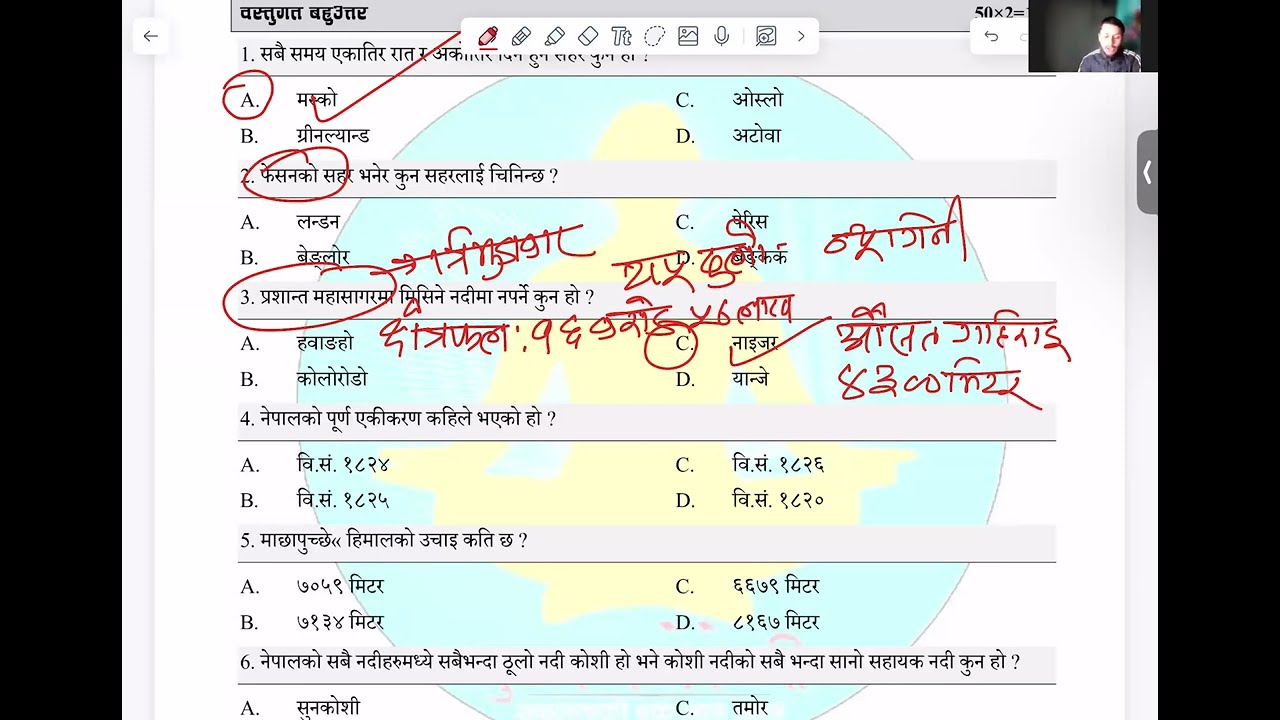 वस्तुगत बहुउत्तर 50×2=
1. सबै समय एकातिर रात र अर्कोतिर दिन हुने सहर कुन हो ?
A. मस्को C. ओस्लो
B. ग्रीनल्यान्ड D. अटोवा
2. फेसनको सहर भनेर कुन सहरलाई चिनिन्छ ?
A. लन्डन C. पेरिस
B. बेङ्लोर D. बैङ्कक
त्रिभुजाकार
न्यूागिनी
3. प्रशान्त महासागरमा मिसिने नदीमा नपर्ने कुन हो ?
क्षेत्रफल: १६ करोड ५६ लाख
A. हवाङहो C. नाइजर
औसत गहिराइ
B. कोलोरोडो D. यान्जे
४३०० मिटर
4. नेपालको पूर्ण एकीकरण कहिले भएको हो ?
A. वि.सं. १८२४ C. वि.सं. १८२६
B. वि.सं. १८२५ D. वि.सं. १८२०
5. माछापुच्छे« हिमालको उचाइ कति छ ?
A. ७०५९ मिटर C. ६६७९ मिटर
B. ७१३४ मिटर D. ८१६७ मिटर
6. नेपालको सबै नदीहरुमध्ये सबैभन्दा ठूलो नदी कोशी हो भने कोशी नदीको सबै भन्दा सानो सहायक नदी कुन हो ?
A. सुनकोशी C. तमोर